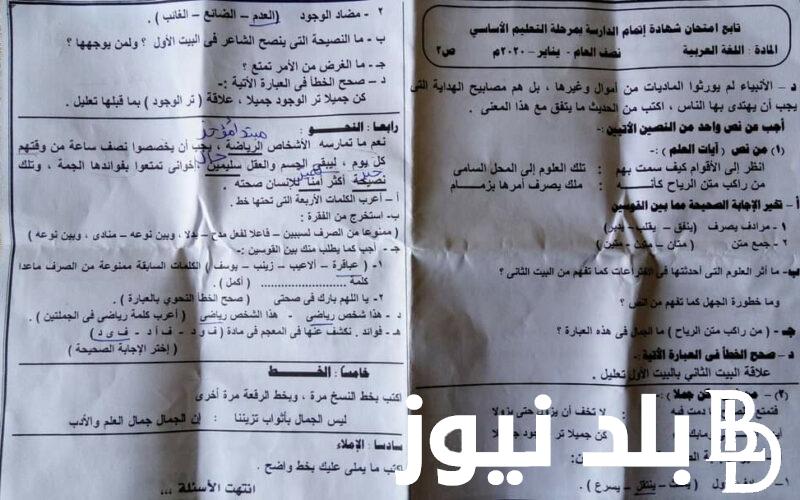 تابع امتحان شهادة إتمام الدارسة بمرحلة التعليم الأساسي
المادة : اللغة العربية نصف العام - يناير - ٢٠٢٠م ص٢
د – الأنبياء لم يورثوا الماديات من أموال وغيرها ، بل هم مصابيح الهداية التى
يجب أن يهتدى بها الناس ، اكتب من الحديث ما يتفق مع هذا المعنى .
أجب من نص واحد من النصين الأتيين :-
(١) من نص ( آيات العلم ) :-
انظر إلى الأقوام كيف سمت بهم : تلك العلوم إلى المحل السامى
من راكب متن الرياح كأنه : ملك يصرف أمرها بزمام
أ – تخير الإجابة الصحيحة مما بين القوسين
١ - مرادف يصرف ( ينفق – يقلب – يدير)
٢ - جمع متن ( متان – مكن – متين )
ب- ما أثر العلوم التى أحدثتها فى الاختراعات كما تفهم من البيت الثانى ؟
وما خطورة الجهل كما تفهم من النص ؟
جـ - ( من راكب متن الرياح ) ما الجمال فى هذه العبارة ؟
د – صحح الخطأ فى العبارة الأتية :-
علاقة البيت الثاني بالبيت الأول تعليل .
(٢) – جملا ) :-
فتمتع دمت فيه : لا تخف أن يزول حتى يزولا
كن جميلا
١- ( – ينتقل – يسرع ) .
٢ - مضاد الوجود (العدم – الضائع – الغائب ) .
ب - ما النصيحة التى ينصح الشاعر فى البيت الأول ؟ ولمن يوجهها ؟
جـ - ما الغرض من الأمر تمتع ؟
د – صحح الخطأ فى العبارة الأتية :-
كن جميلا تر الوجود جميلا ، علاقة ( تر الوجود ) بما قبلها تعليل .
رابعا : النحو : مبتدأ مؤخر
نعم ما تمارسه الأشخاص الرياضة ، يجب أن يخصصوا نصف ساعة من وقتهم
كل يوم ، ليبقى الجسم والعقل سليمين إخوانى تمتعوا بفوائدها الجمة ، وتلك
نصيحة أكثر أمنا للإنسان صحته .
أ – أعرب الكلمات الأربعة التى تحتها خط .
ب- استخرج من الفقرة :
( ممنوعا من الصرف لسببين – فاعلا لفعل مدح – بدلا ، وبين نوعه – منادى ، وبين نوعه )
جـ - أجب كما يطلب منك بين القوسين :-
١- ( عباقرة – ألاعيب – زينب – يوسف ) الكلمات السابقة ممنوعة من الصرف ماعدا
كلمة .................... ( أكمل ) .
٢ - يا اللهم بارك فى صحتى ( صحح الخطأ النحوي بالعبارة ) .
د - هذا شخص رياضى - هذا الشخص رياضى ( أعرب كلمة رياضى فى الجملتين ) .
هـ - فوائد . نكشف عنها فى المعجم فى مادة ( ف و د – ف أ د – ف ى د )
( إختر الإجابة الصحيحة )
خامسا : الخط
اكتب بخط النسخ مرة ، وبخط الرقعة مرة أخرى
ليس الجمال بأثواب تزيننا : إن الجمال جمال العلم والأدب
سادسا : الإملاء
اكتب ما يملى عليك بخط واضح .
انتهت الأسئلة ...
بلد نيوز